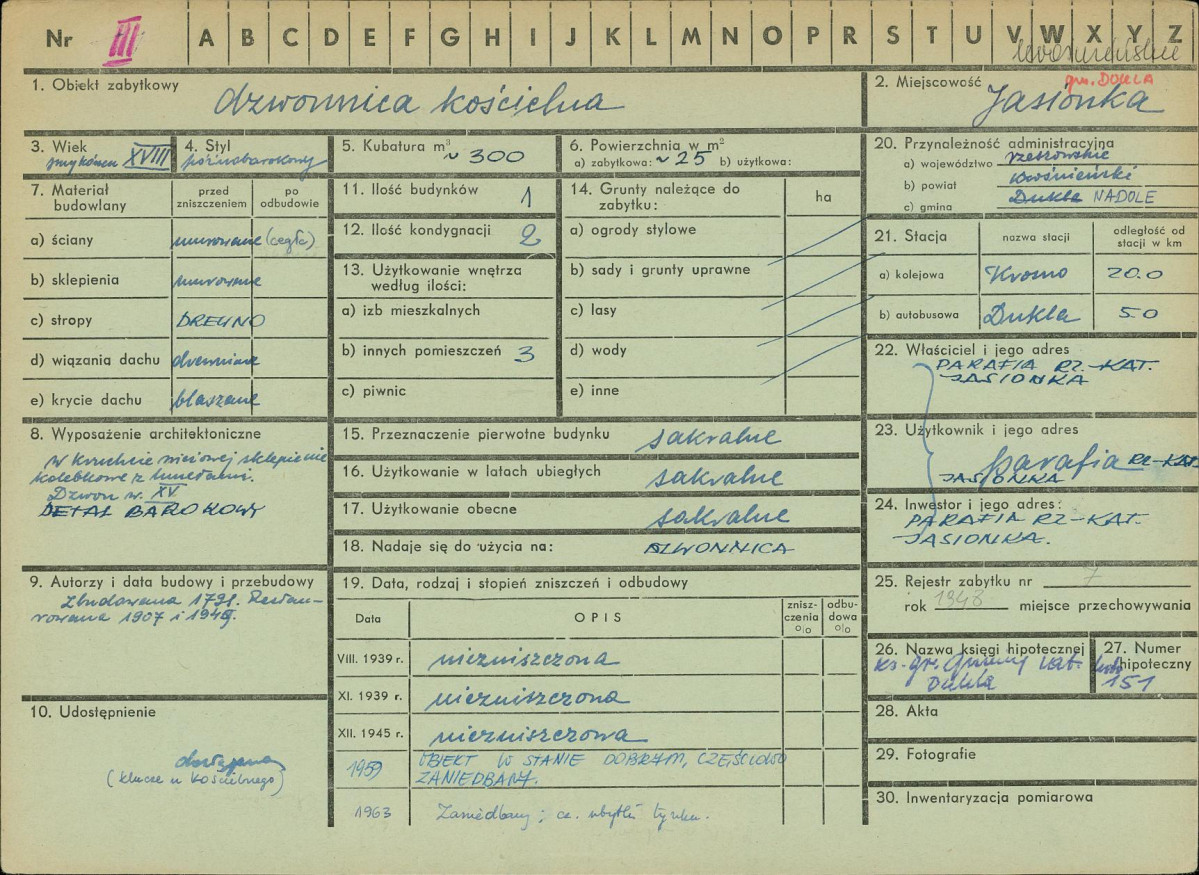 Nr III A B C D E F G H I J K L M N O P R S T U V W X Y Z
krośnieńskie
1. Obiekt zabytkowy
dzwonnica kościelna
2. Miejscowość
gm. DUKLA
Jasionka
3. Wiek
XVIII
4. Styl
późnobarokowy
5. Kubatura m³
~ 300
6. Powierzchnia w m²
a) zabytkowa: ~ 25 b) użytkowa:
20. Przynależność administracyjna
a) województwo rzeszowskie
b) powiat krośnieński
c) gmina Dukla NADOLE
7. Materiał budowlany
przed zniszczeniem
po odbudowie
a) ściany murowane (cegła)
b) sklepienia murowane
c) stropy DREWNO
d) wiązania dachu drewniane
e) krycie dachu blaszane
11. Ilość budynków 1
12. Ilość kondygnacji 2
13. Użytkowanie wnętrza według ilości:
a) izb mieszkalnych
b) innych pomieszczeń 3
c) piwnic
14. Grunty należące do zabytku:
ha
a) ogrody stylowe
b) sady i grunty uprawne
c) lasy
d) wody
e) inne
21. Stacja
nazwa stacji
odległość od stacji w km
a) kolejowa Krosno 20.0
b) autobusowa Dukla 5.0
22. Właściciel i jego adres
PARAFIA RZ-KAT.
JASIONKA
8. Wyposażenie architektoniczne
W kruchcie sklepienie
kolebkowe z lunetami.
Dzwon w. XV
DETAL BAROKOWY
15. Przeznaczenie pierwotne budynku sakralne
16. Użytkowanie w latach ubiegłych sakralne
17. Użytkowanie obecne sakralne
18. Nadaje się do użycia na: DZWONNICA
23. Użytkownik i jego adres
parafia RZ-KAT.
JASIONKA
24. Inwestor i jego adres:
PARAFIA RZ-KAT.
JASIONKA.
9. Autorzy i data budowy i przebudowy
Zbudowana 1791. Restau-
rowana 1907 i
19. Data, rodzaj i stopień zniszczeń i odbudowy
Data
OPIS
znisz-czenia %
odbu-dowa %
VIII. 1939 r. niezniszczona
XI. 1939 r. niezniszczona
XII. 1945 r. niezniszczona
1959 OBIEKT W STANIE DOBRYM, CZĘŚCIOWO
ZANIEDBANY.
1963 Zaniedbany; cz. ubytki tynku.
25. Rejestr zabytku nr 7
rok 1948 miejsce przechowywania
26. Nazwa księgi hipotecznej
ks. gr. Gminy kat.
Dukla
27. Numer hipoteczny
151
10. Udostępnienie
dostępna
(klucze u kościelnego)
28. Akta
29. Fotografie
30. Inwentaryzacja pomiarowa